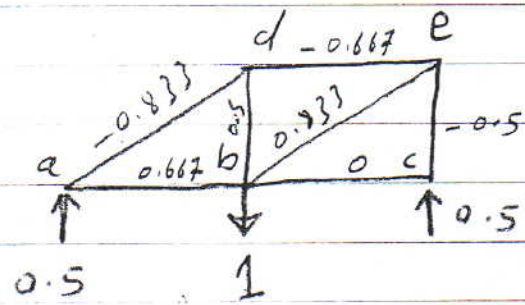 d -0.667 e
-0.833 0.5 0.833 -0.5
a 0.667 b 0 c
0.5 1 0.5